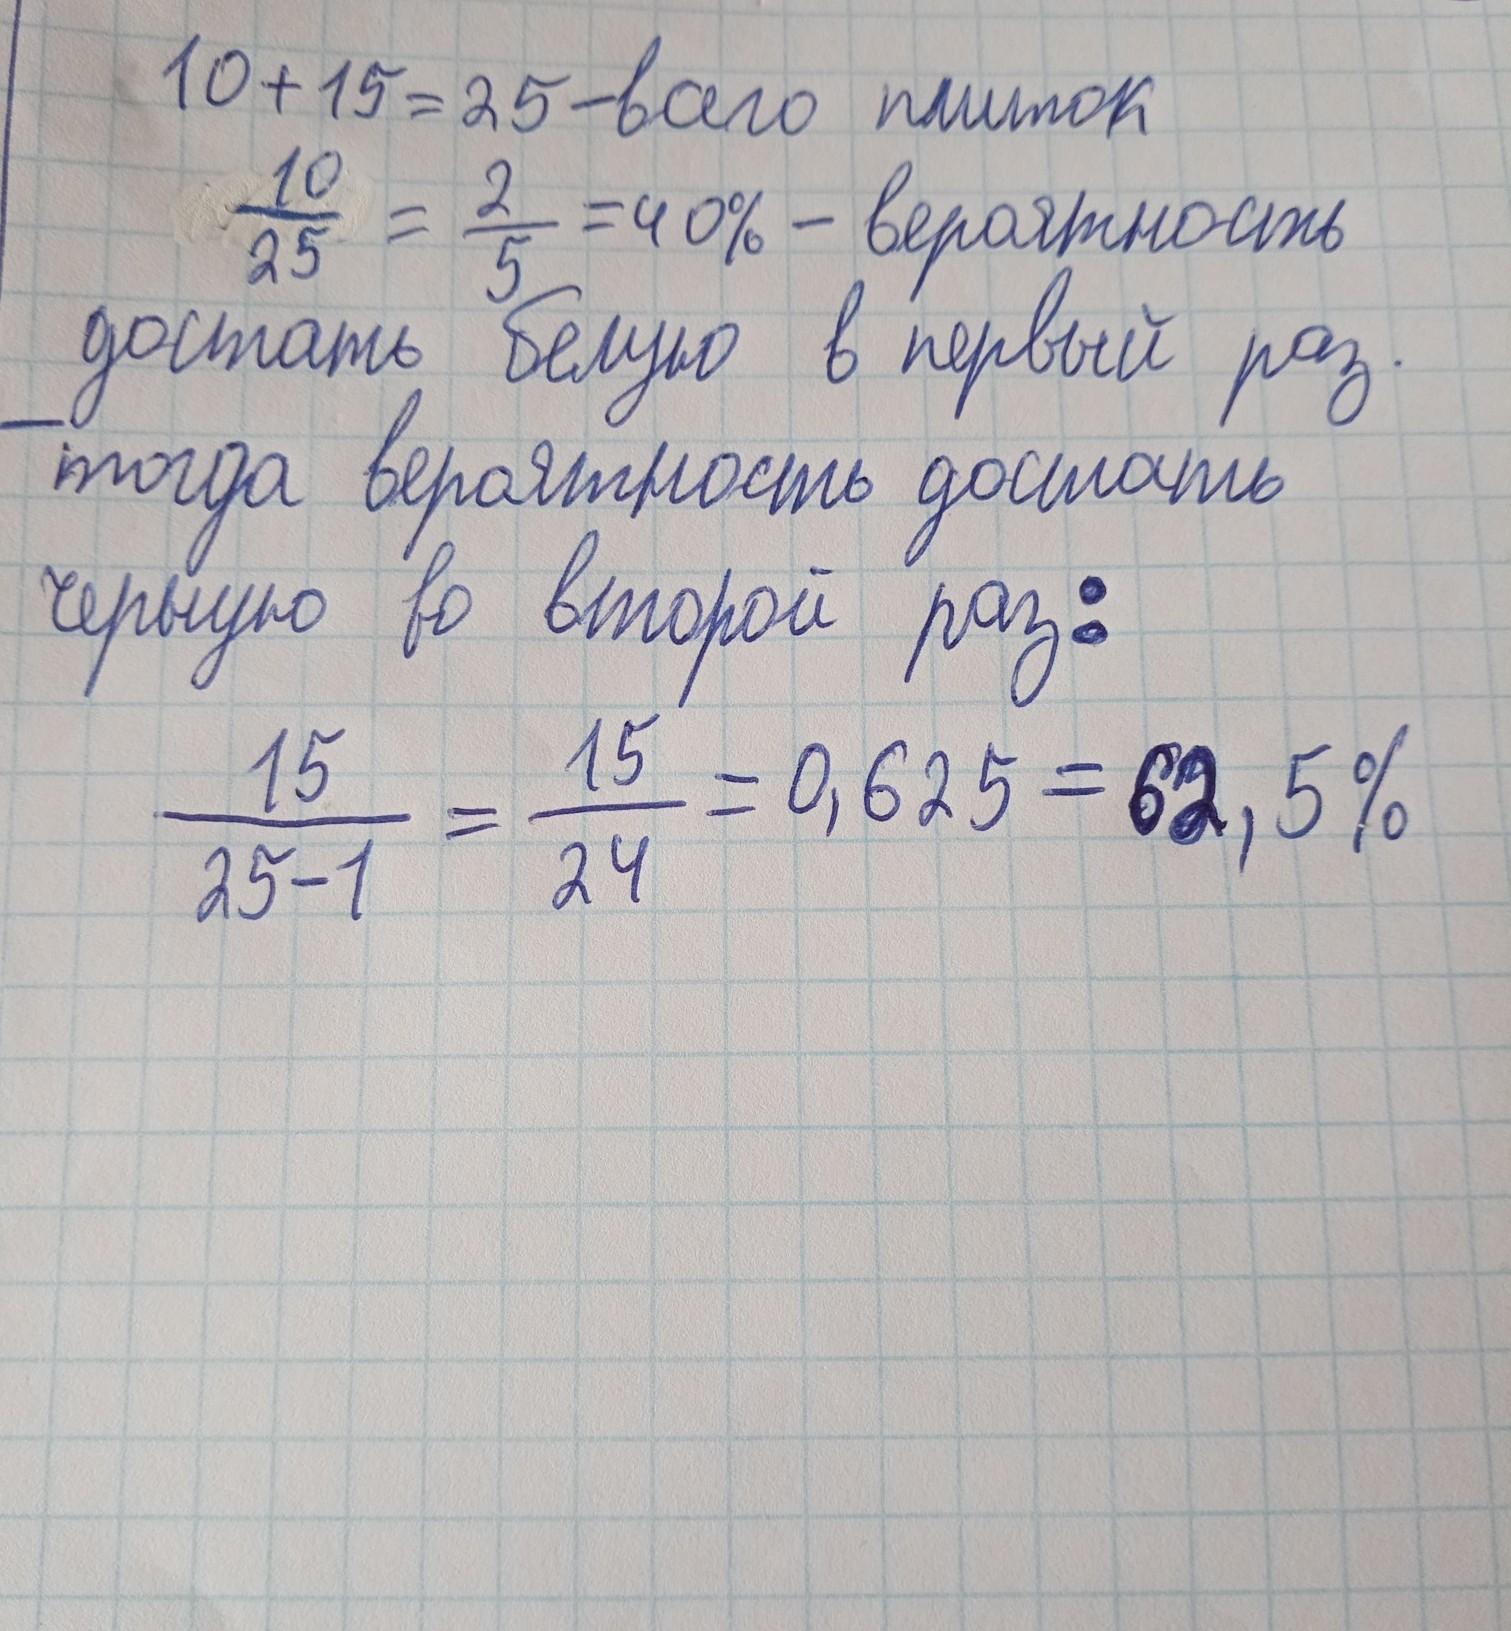 10+15=25-всего плиток
10/25 = 2/5 =40% - вероятность
достать белую в первый раз.
тогда вероятность достать
черную во второй раз:
15/(25-1) = 15/24 = 0,625 = 62,5%